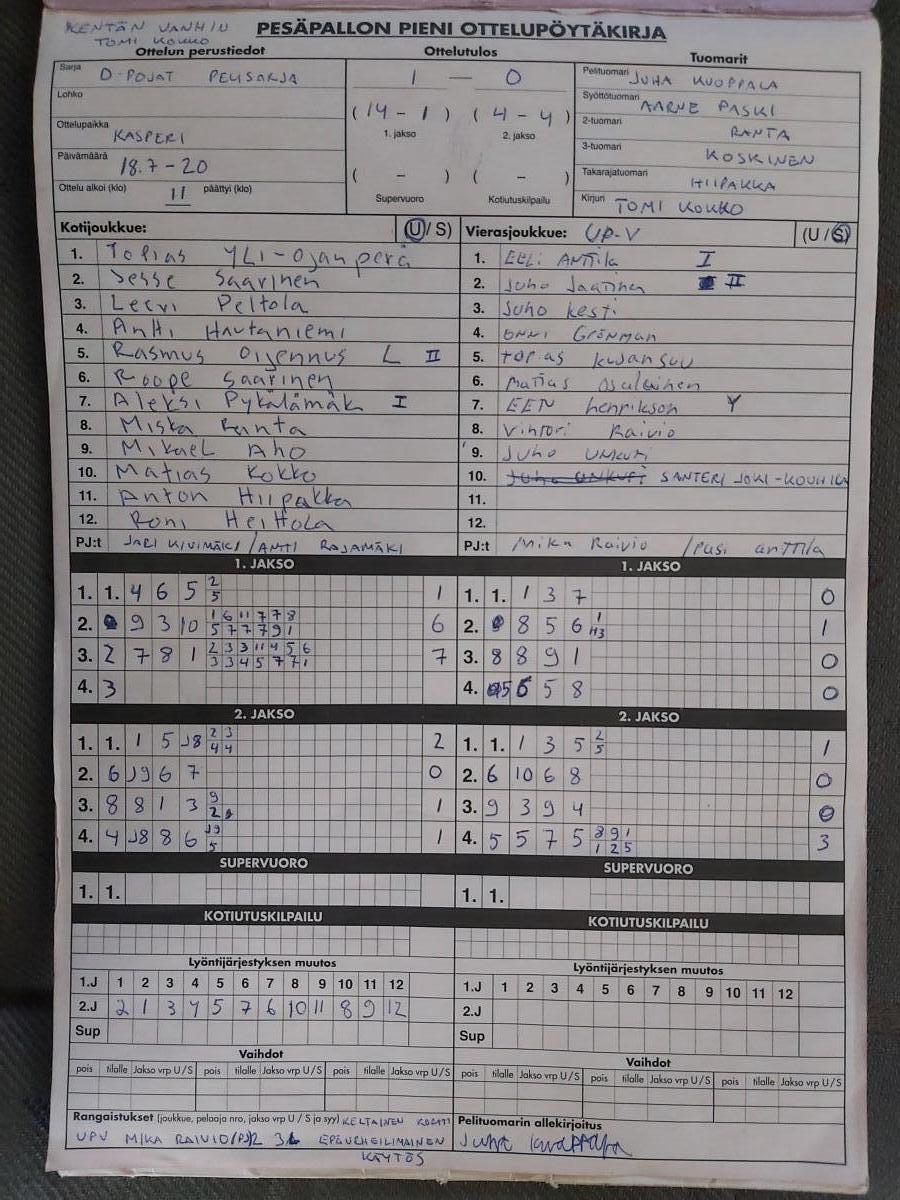 KENTÄN VANHIN
TOMI KOKKO
PESÄPALLON PIENI OTTELUPÖYTÄKIRJA
Ottelun perustiedot Ottelutulos Tuomarit
Sarja D-POJAT PERUSARJA
1 — 0
Pelituomari JUHA KUOPPALA
Lohko
Syöttötuomari AARNE PASKI
(14 - 1) (4 - 4)
1. jakso 2. jakso
Ottelupaikka KASPERI
2-tuomari RANTA
Päivämäärä 18.7-20
3-tuomari KOSKINEN
( - ) ( - )
Takarajatuomari HIIPAKKA
Ottelu alkoi (klo) 11 päättyi (klo)
Supervuoro Kotiutuskilpailu
Kirjuri TOMI KOKKO
Kotijoukkue: (U/S) Vierasjoukkue: UP-V (U/S)
1. Topias Yli-Ojanperä 1. EELi ANTTila I
2. Jesse Saarinen 2. Juho Jaatinen II
3. Leevi Peltola 3. Juho kesti
4. Antti Hautaniemi 4. ONNi Grönman
5. Rasmus Oijennus L II 5. topias kujansuu
6. Roope Saarinen 6. Matias
7. Aleksi Pykälämäk I 7. EEN henrikson Y
8. Miska Ranta 8. Vihtori Raivio
9. Mikael Aho 9. Juho UNKURi
10. Matias Kokko 10. Juho UNKURi SANTERI JOKI-KOUHILA
11. Anton Hiipakka 11.
12. Roni Heittola 12.
PJ:t JARI KIVIMÄKI / ANTTI RAJAMÄKI PJ:t Mika Raivio / pasi anttila
1. JAKSO 1. JAKSO
1. 1. 4 6 5 2/5 1 1. 1. 1 3 7 0
2. 9 3 10 1 6 11 7 7 8 / 5 7 7 7 9 1 6 2. 8 5 6 1/H3 1
3. 2 7 8 1 2 3 3 11 4 5 6 / 3 3 4 5 7 7 1 7 3. 8 8 9 1 0
4. 3 4. 5 6 5 8 0
2. JAKSO 2. JAKSO
1. 1. 1 5 J8 2 3 / 4 4 2 1. 1. 1 3 5 2/5 1
2. 6 J9 6 7 0 2. 6 10 6 8 0
3. 8 8 1 3 9/2 1 3. 9 3 9 4 0
4. 4 J8 8 6 J9/5 1 4. 5 5 7 5 8 9 1 / 1 2 5 3
SUPERVUORO SUPERVUORO
1. 1. 1. 1.
KOTIUTUSKILPAILU KOTIUTUSKILPAILU
Lyöntijärjestyksen muutos Lyöntijärjestyksen muutos
1.J 1 2 3 4 5 6 7 8 9 10 11 12 1.J 1 2 3 4 5 6 7 8 9 10 11 12
2.J 2 1 3 4 5 7 6 10 11 8 9 12 2.J
Sup Sup
Vaihdot Vaihdot
pois tilalle Jakso vrp U/S pois tilalle Jakso vrp U/S pois tilalle Jakso vrp U/S pois tilalle Jakso vrp U/S pois tilalle Jakso vrp U/S pois tilalle Jakso vrp U/S
Rangaistukset (joukkue, pelaaja nro, jakso vrp U / S ja syy) KELTAINEN KORTTI Pelituomarin allekirjoitus
UPV MIKA RAIVIO (PJ) 2 3L EPÄURHEILIMAINEN Juha Kuoppala
KÄYTÖS